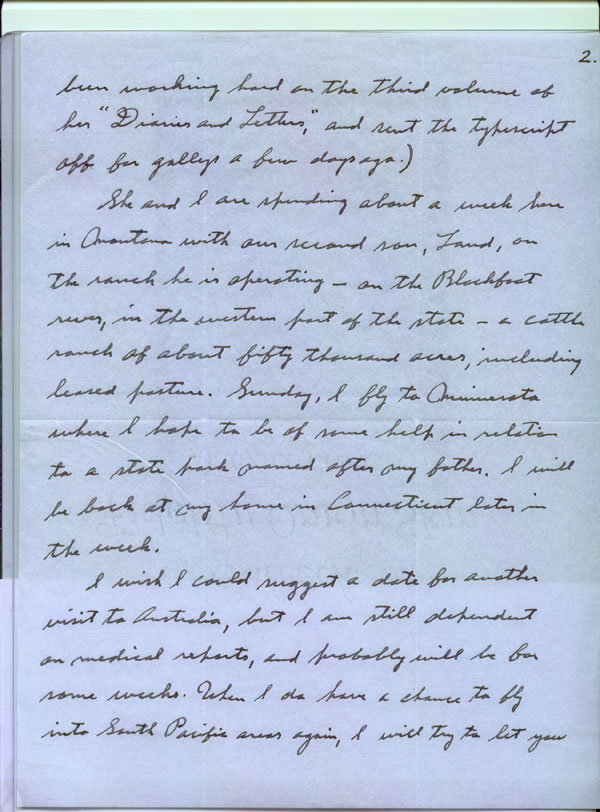 2.
been working hard on the third volume of
her "Diaries and Letters," and sent the typescript
off for galleys a few days ago.)
She and I are spending about a week here
in Montana with our second son, Land, on
the ranch he is operating — on the Blackfoot
river, in the western part of the state — a cattle
ranch of about fifty thousand acres, including
leased pasture. Sunday, I fly to Minnesota
where I hope to be of some help in relation
to a state park named after my father. I will
be back at my home in Connecticut later in
the week.
I wish I could suggest a date for another
visit to Australia, but I am still dependent
on medical reports, and probably will be for
some weeks. When I do have a chance to fly
into South Pacific areas again, I will try to let you